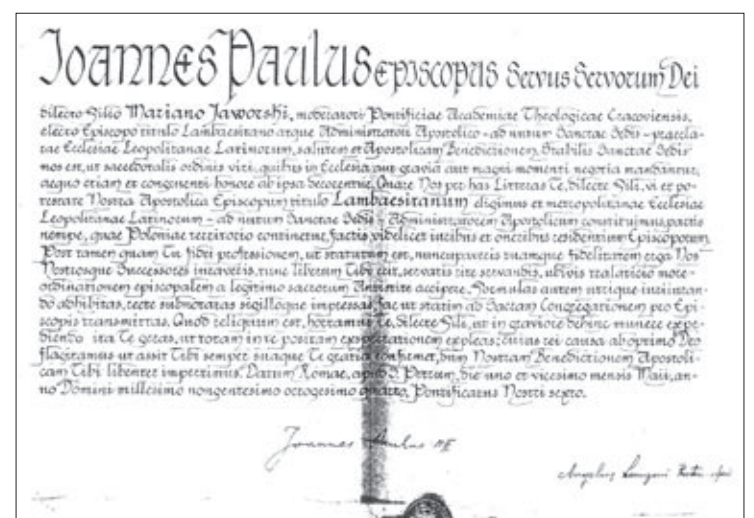 Joannes Paulus episcopus Servus Servorum Dei
dilecto Filio Mariano Jaworski, moderatori Pontificiae Academiae Theologicae Cracoviensis,
electo Episcopo titulo Lambaesitano atque Administratori Apostolico - ad nutum Sanctae Sedis - praecla-
rae Ecclesiae Leopolitanae Latinorum, salutem et Apostolicam Benedictionem. Stabilis Sanctae Sedis
mos est, ut sacerdotalis ordinis viri, quibus in Ecclesia aut gravia aut magni momenti negotia mandantur,
aequo etiam et congruenti honore ab ipsa decorentur. Quare Nos per has Litteras Te, dilecte Fili, vi et po-
testate Nostra Apostolica Episcopum titulo Lambaesitanum eligimus et metropolitanae Ecclesiae
Leopolitanae Latinorum - ad nutum Sanctae Sedis - Administratorem Apostolicum constituimus, partis
nempe, quae Poloniae territorio continetur, factis videlicet iuribus et oneribus residentium Episcoporum.
Post tamen quam Tu fidei professionem, ut statutum est, nuncupaveris tuamque fidelitatem erga Nos
Nostrosque Successores iuraveris, tunc liberum Tibi erit, servatis rite servandis, ubivis translaticio more
ordinationem episcopalem a legitimo sacrorum Antistite accipere. Formulas autem utrique iusiuran-
do adhibitas, recte subnotatas sigilloque impressas, fac ut statim ad Sacram Congregationem pro Epi-
scopis transmittas. Quod reliquum est, hortamur Te, dilecte Fili, ut in graviore dehinc munere expe-
diendo ita Te geras, ut totam in te positam exspectationem expleas: cuius rei causa ab optimo Deo
flagitamus ut assit Tibi semper suaque Te gratia confirmet, dum Nostram Benedictionem Apostoli-
cam Tibi libenter impertimus. Datum Romae, apud S. Petrum, die uno et vicesimo mensis Maii, an-
no Domini millesimo nongentesimo octogesimo quarto, Pontificatus Nostri sexto.
Joannes Paulus
Angelus